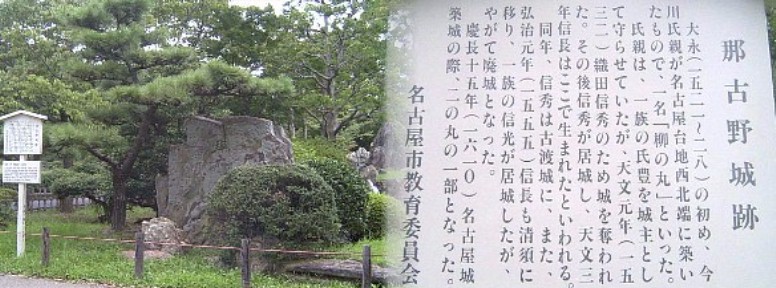 那古野城跡
大永（一五二一〜二八）の初め、今
川氏親が名古屋台地西北端に築い
たもので、一名「柳の丸」といった。
氏親は、一族の氏豊を城主とし
て守らせていたが、天文元年（一五
三二）織田信秀のため城を奪われ
た。その後信秀が居城し、天文三
年信長はここで生まれたといわれる。
同年、信秀は古渡城に、また、
弘治元年（一五五五）信長も清須に
移り、一族の信光が居城したが、
やがて廃城となった。
慶長十五年（一六一〇）名古屋城
築城の際、二の丸の一部となった。
名古屋市教育委員会